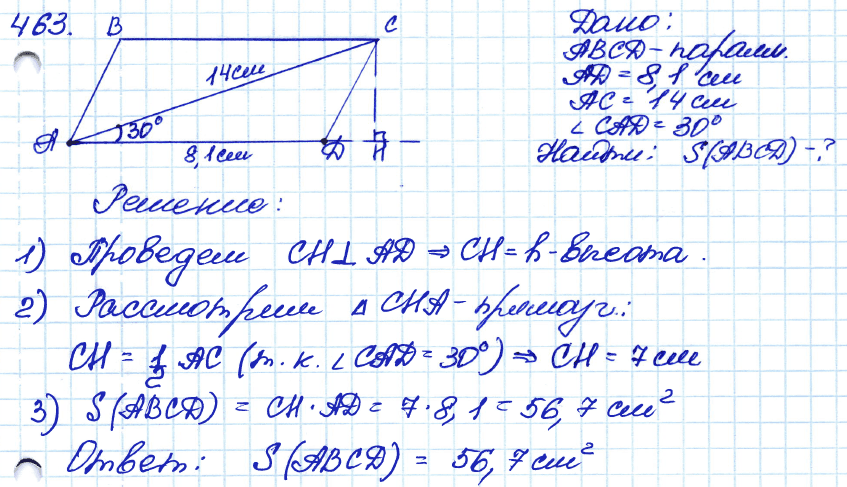 463.
B
C
14см
30°
A
8,1см
D
H
Дано:
ABCD - паралл.
AD = 8,1 см
AC = 14 см
∠ CAD = 30°
Найти: S(ABCD) - ?
Решение:
1) Проведем CH⊥ AD ⇒ CH = h - высота.
2) Рассмотрим △ CHA - прямоуг.:
CH = 1/2 AC (т. к. ∠ CAD = 30°) ⇒ CH = 7 см
3) S(ABCD) = CH · AD = 7 · 8,1 = 56,7 см²
Ответ: S(ABCD) = 56,7 см²